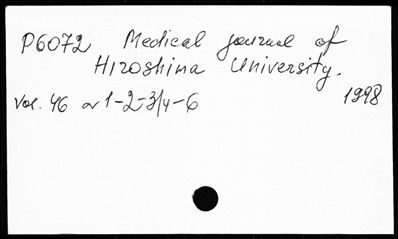 P6072 Medical journal of
Hiroshima University.
Vol. 46 № 1-2-3/4-6 1998